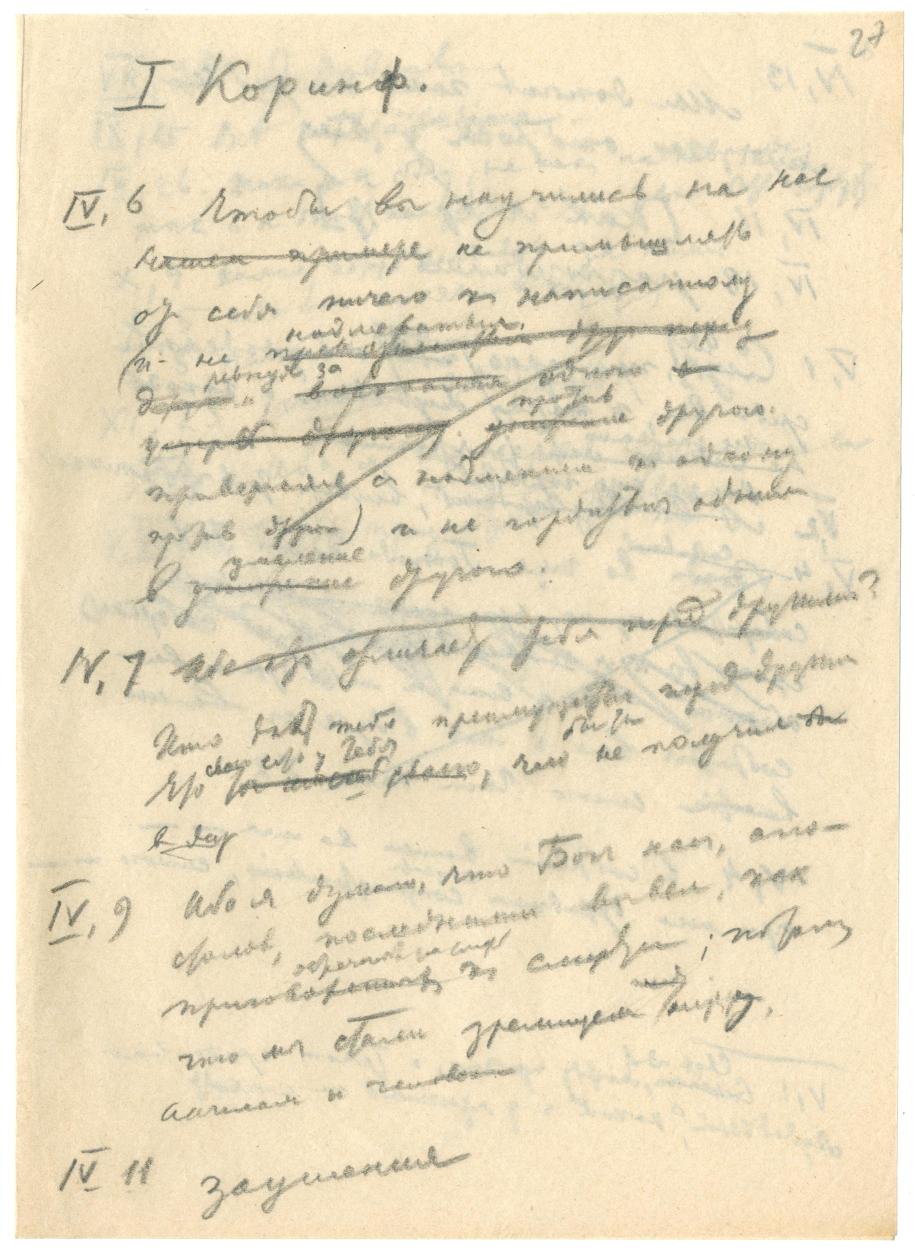 27
I Коринф.
IV, 6 Чтобы вы научились на нас
нашем примере не примышлять
от себя ничего к написанному
надмеваться
(и не друг перед
ревнуя за
другом, одного
против
другого.
надмением к одному
против других) и не гордились одним
умаление
в другого.
IV, 7 Ибо кто отличает тебя перед другими?
Кто дает тебе преимущество перед другими
свое есть у тебя бы ты
Что своего, чего не получил
в дар
IV, 9 Ибо я думаю, что Бог нас, апо-
столов, последними вывел, как
обреченных на смерть
приговоренных к смерти; потому
что мы стали зрелищем миру,
ангелам и человекам
IV 11 заушения